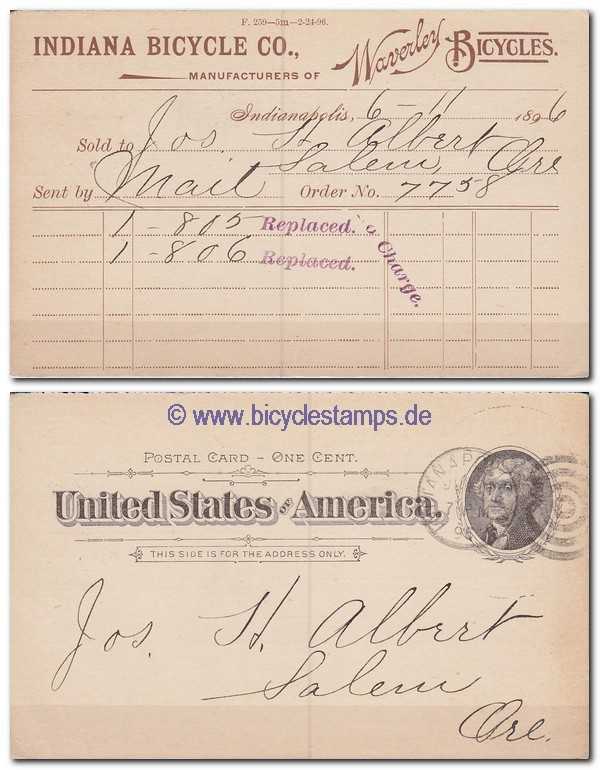 F. 259—5m—2-24-96.
INDIANA BICYCLE CO., Waverley BICYCLES.
MANUFACTURERS OF
Indianapolis, 6-11 1896
Sold to Jos. H. Albert
Salem, Ore
Sent by Mail Order No. 7758
1 - 805 Replaced.
1 - 806 Replaced.
Charge.
© www.bicyclestamps.de
POSTAL CARD - ONE CENT.
United States of America.
THIS SIDE IS FOR THE ADDRESS ONLY.
Jos. H. Albert
Salem
Ore.